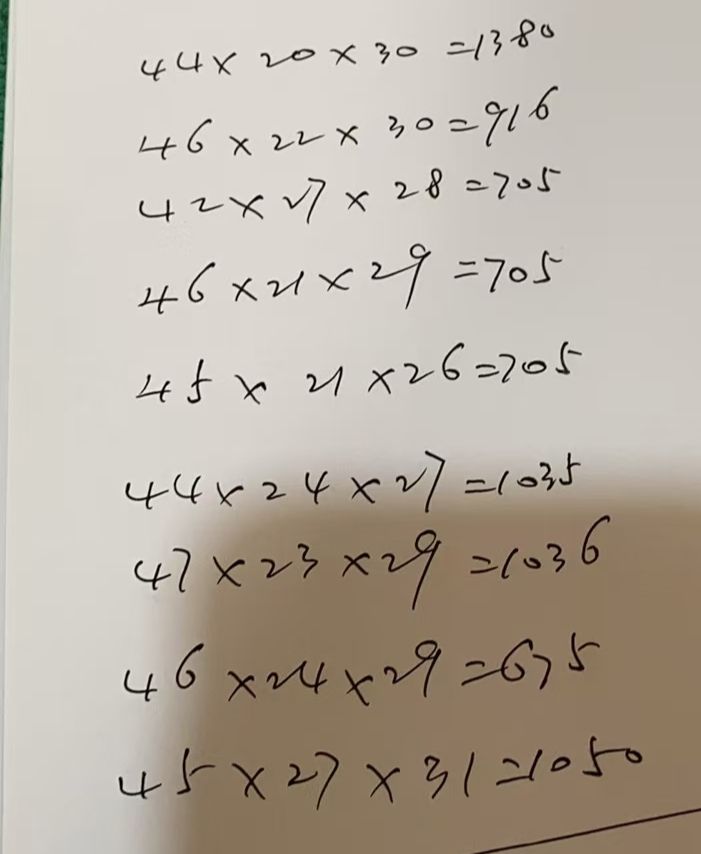 44×20×30=1380
46×22×30=916
42×27×28=705
46×21×29=705
45×21×26=705
44×24×27=1035
47×23×29=1036
46×24×29=675
45×27×31=1050